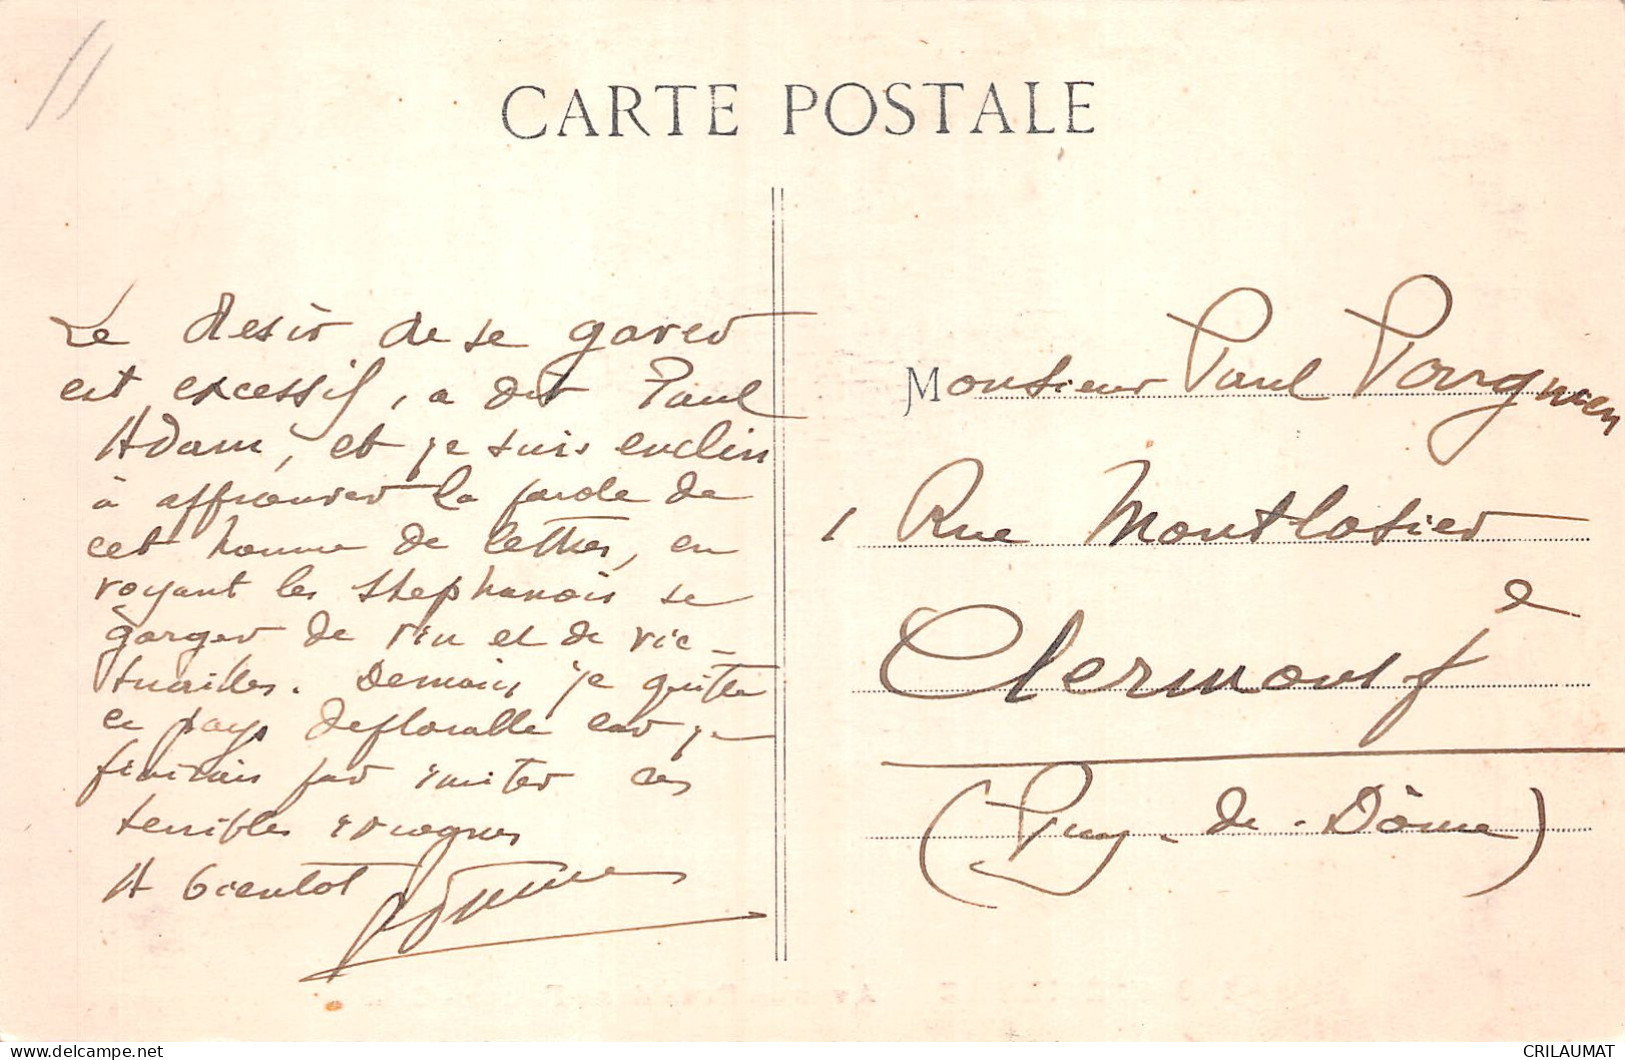 CARTE POSTALE
Le desir de se gaver
est excessif, a dit Paul
Adam, et je suis enclin
à approuver la parole de
cet homme de lettres, en
voyant les Stephanois se
gorger de vin et de vic-
tuailles. Demain je quitte
ce pays déplorable car je
finirais par imiter ces
terribles ivrognes
A bientot
Monsieur Paul
1 Rue Montlosier
Clermont f
(Puy-de-Dôme)
CRILAUMAT